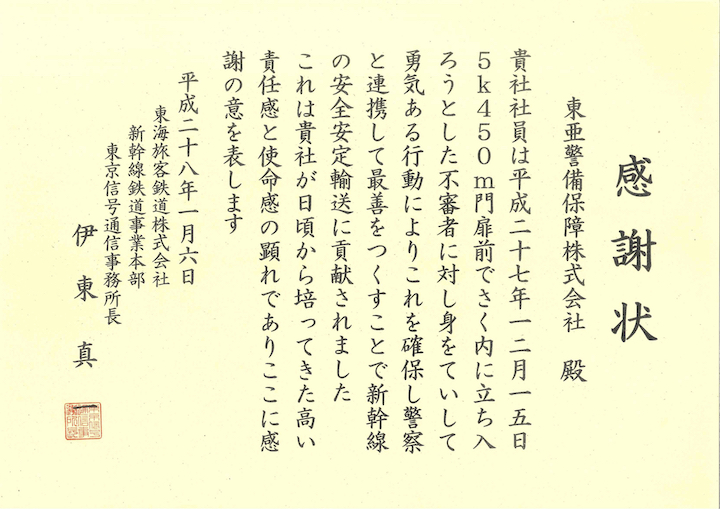 感謝状
東亜警備保障株式会社 殿
貴社社員は平成二十七年一二月一五日
5k450m門扉前でさく内に立ち入
ろうとした不審者に対し身をていして
勇気ある行動によりこれを確保し警察
と連携して最善をつくすことで新幹線
の安全安定輸送に貢献されました
これは貴社が日頃から培ってきた高い
責任感と使命感の顕れでありここに感
謝の意を表します
平成二十八年一月六日
東海旅客鉄道株式会社
新幹線鉄道事業本部
東京信号通信事務所長
伊東 真一